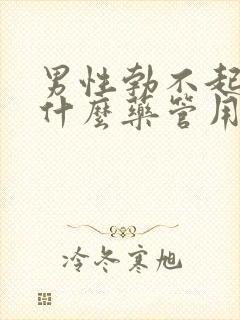 男性勃不起
什麼藥管用
冷冬寒旭